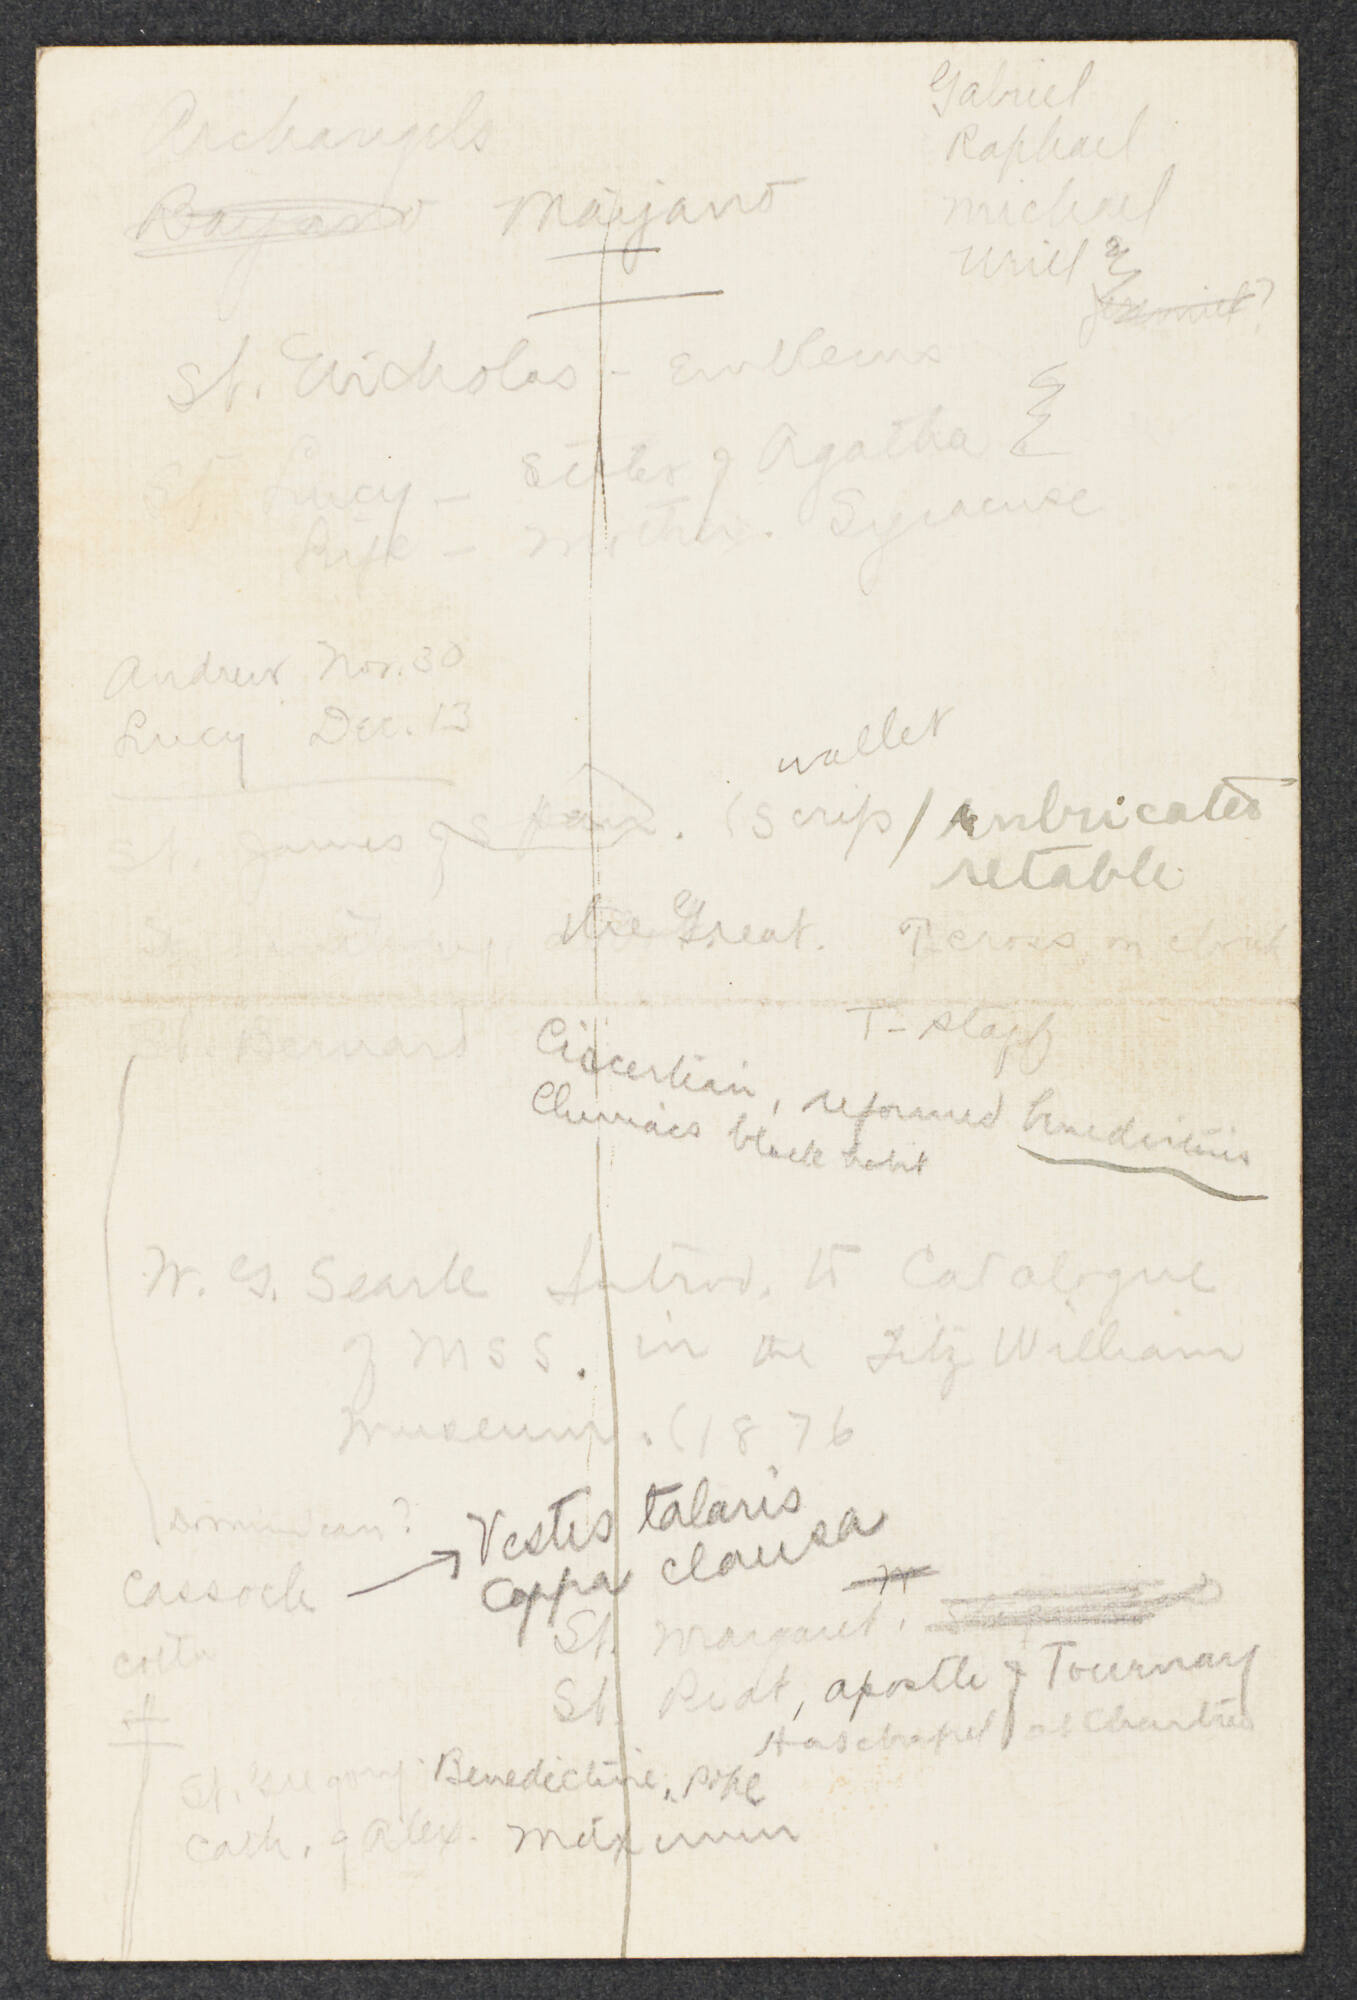 Archangels
Gabriel
Raphael
Michael
Uriel &
Jeremiel?
Bayano Maijano
St. Nicholas - Emblems
St. Lucy - Sister of Agatha
Life - Mother. Syracuse
Andrew Nov. 30
Lucy Dec. 13
wallet
St. James of Spain. (Scrip / imbricated
retable
St. Anthony, the Great. T cross on cloak
T - staff
St. Bernard Ciscertian, reformed benedictines
Cluniacs black habit
W. G. Searle Introd. to Catalogue
of MSS. in the Fitz William
Museum. (1876
Dominican?
Vestis talaris
Cassock → Cappa clausa
St. Margaret.
cotta
St. Piat, apostle of Tournay
Has chapel at Chartres
St. Gregory Benedictine, Pope
Cath. of Alex. Maximin